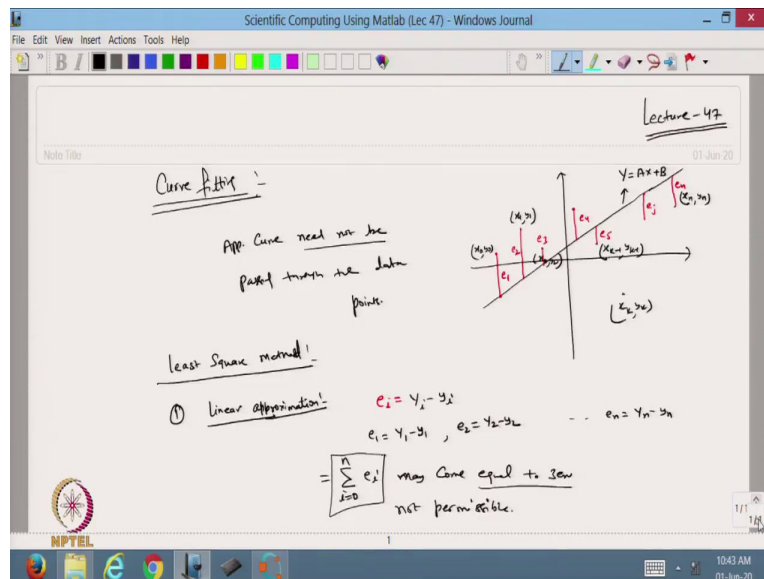 Scientific Computing Using Matlab (Lec 47) - Windows Journal
File Edit View Insert Actions Tools Help
B I
Lecture - 47
Note Title
01-Jun-20
Curve fitting :-
Y = Ax + B
App. Curve need not be
passed through the data
points.
(x₁, y₁)
e₁ e₂ e₃ e₄ e₅ e_j e_n
(x_n, y_n)
(x_k, y_k)
Least Square Method :-
① Linear approximation :-
e_i = Y_i - y_i
e₁ = Y₁ - y₁ , e₂ = Y₂ - y₂ -- e_n = Y_n - y_n
= ∑_{i=0}^{n} e_i may come equal to zero
not permissible.
NPTEL
1
1/1
10:43 AM
01-Jun-20